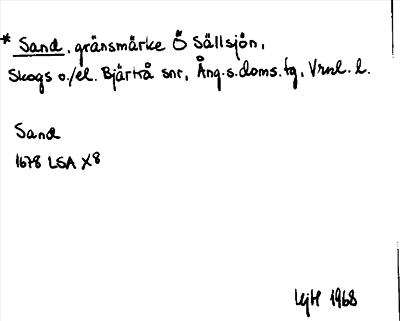 * Sand, gränsmärke Ö Sällsjön,
Skogs o./el. Bjärtrå snr, Ång.s.doms.tg, Vrnl. l.
Sand
1678 LSA X8
LyH 1968